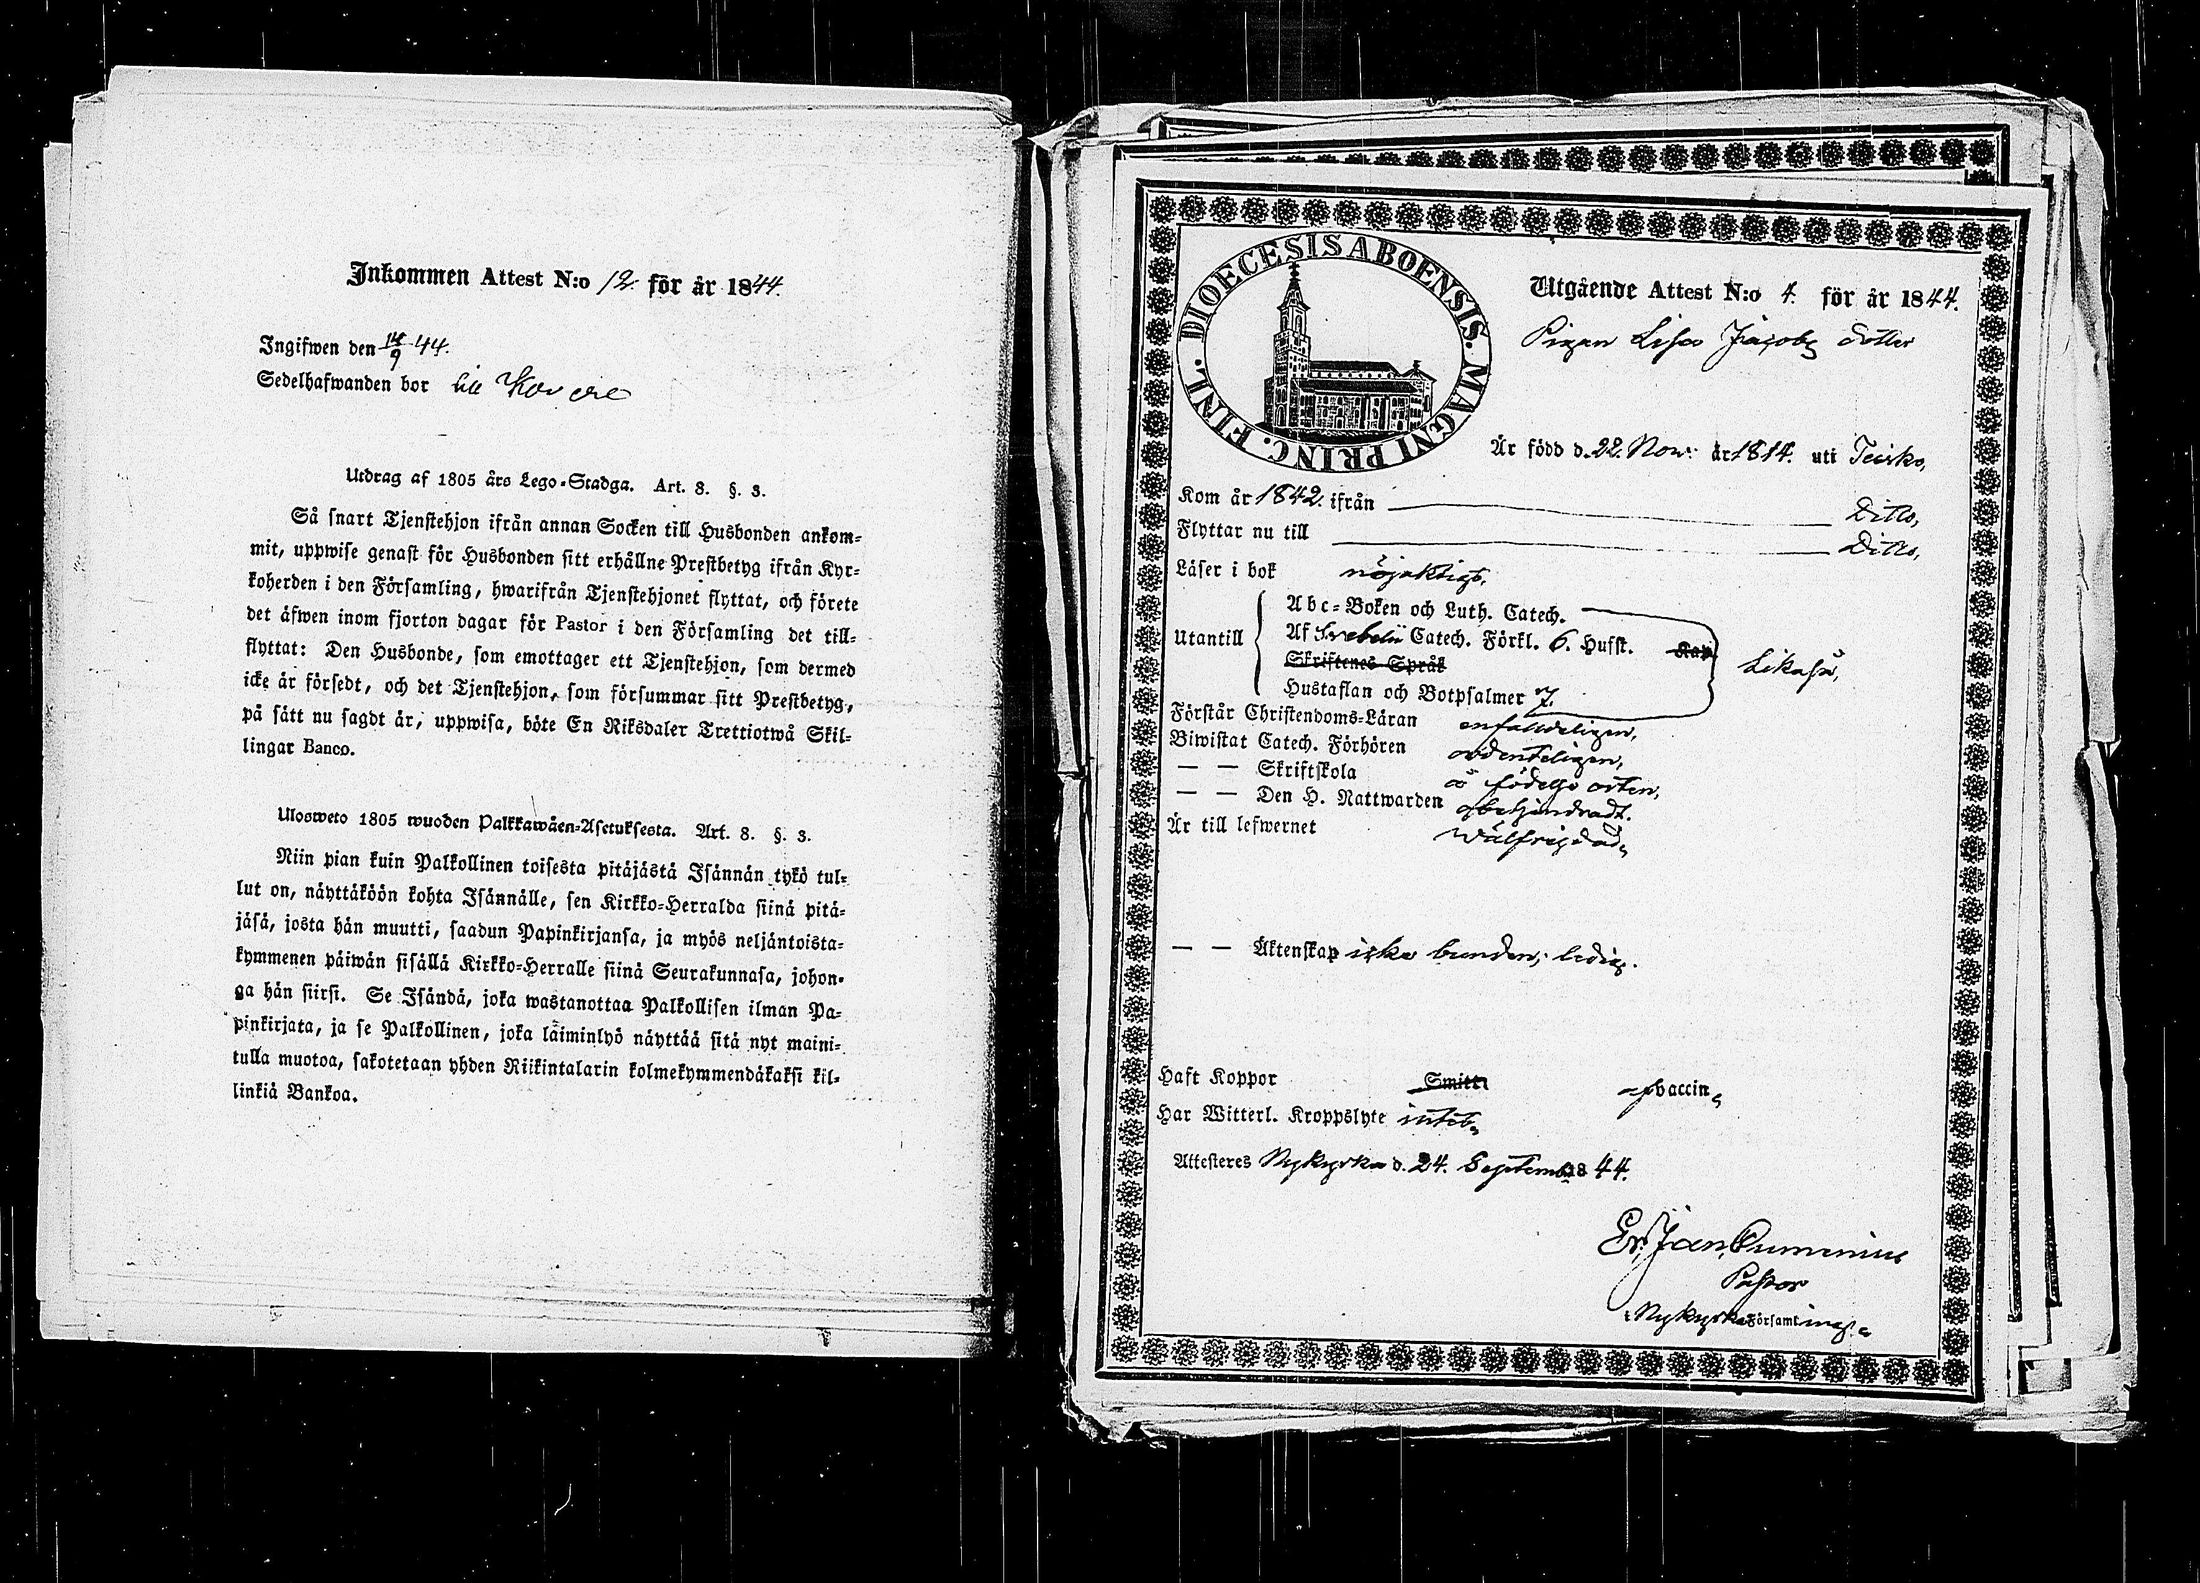 Inkommen Attest N:o 12 för år 1844.
Ingifwen den 44.
Sedelhafwanden bor
Utdrag af 1805 års Lego-Stadga. Art. 8. §. 3.
Så snart Tjenstehjon ifrån annan Socken till Husbonden ankom-
mit, uppwise genast för Husbonden sitt erhållne Prestbetyg ifrån Kyr-
koherden i den Församling, hwarifrån Tjenstehjonet flyttat, och förete
det äfwen inom fjorton dagar för Pastor i den Församling det till-
flyttat: Den Husbonde, som emottager ett Tjenstehjon, som dermed
icke är försedt, och det Tjenstehjon, som försummar sitt Prestbetyg,
på sätt nu sagdt är, uppwisa, böte En Riksdaler Trettiotwå Skil-
lingar Banco.
Ulosweto 1805 wuoden Palkkawäen-Asetuksesta. Art. 8. §. 3.
Niin pian kuin Palkollinen toisesta pitäjästä Isännän tykö tul-
lut on, näyttäköön kohta Isännälle, sen Kirkko-Herralda siinä pitä-
jäsä, josta hän muutti, saadun Papinkirjansa, ja myös neljäntoista-
kymmenen päiwän sisällä Kirkko-Herralle siinä Seurakunnasa, johon-
ga hän siirsi. Se Isändä, joka wastanottaa Palkollisen ilman Pa-
pinkirjata, ja se Palkollinen, joka läiminlyö näyttää sitä nyt maini-
tulla muotoa, sakotetaan yhden Riikintalarin kolmekymmendäkaksi kil-
linkiä Bankoa.
DIOECESIS ABOENSIS. MAGNI PRINC. FINL.
Utgående Attest N:o 4. för år 1844.
Pigan Lisa Jacobs dotter
Är född d. 22. Nov: år 1814. uti Teisko,
Kom år 1842. ifrån Ditto,
Flyttar nu till Ditto,
Läser i bok nöjaktigt,
Utantill
Abc-Boken och Luth. Catech.
Af Svebelii Catech. Förkl. 6. Hufst. Kap.
Skriftenes Språk
Hustaflan och Botpsalmer 7.
Likaså,
Förstår Christendoms-Läran enfaldeligen,
Biwistat Catech. Förhören ordenteligen,
— — Skriftskola å födelse orten,
— — Den H. Nattwarden obehindradt.
Är till lefwernet wälfrägdad,
— — Äktenskap icke bunden, ledig.
Haft Koppor Smitt vaccin,
Har Witterl. Kroppslyte intet,
Attesteres Nykyrka d. 24. September 1844.
Pastor
Nykyrka Församling.